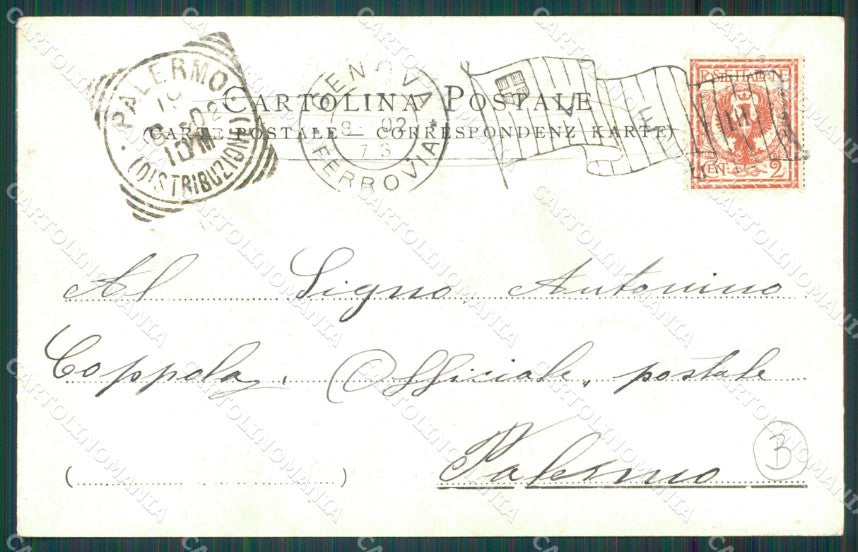 PALERMO
10
02
10M
(DISTRIBUZIONE)
GENOVA
8 02
FERROVIA
CARTOLINA POSTALE
(CARTE POSTALE — CORRESPONDENZ KARTE)
2
Al Signo Antonino
Coppola, Officiale, postale
Palermo
B
( )
CARTOLINOMANIA